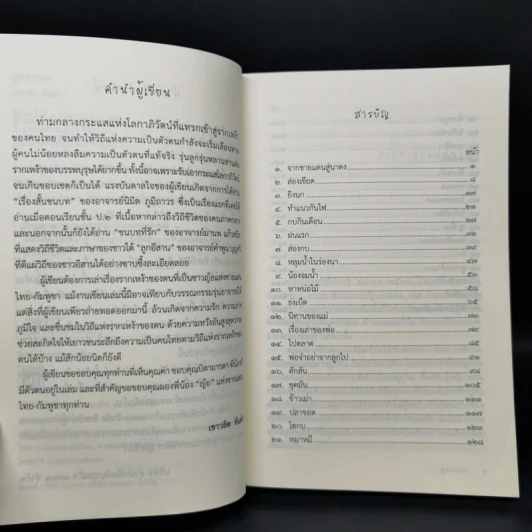 คำนำผู้เขียน
ท่ามกลางกระแสแห่งโลกาภิวัตน์ที่แทรกเข้าสู่รากเหง้า
ของคนไทย จนทำให้วิถีแห่งความเป็นตัวตนกำลังจะเริ่มเลือนหาย
ผู้คนไม่น้อยหลงลืมความเป็นตัวตนที่แท้จริง รุ่นลูกรุ่นหลานสาน
รากเหง้าของบรรพบุรุษได้ยากขึ้น ทั้งนี้อาจเพราะรับเอากระแสโลกาภิวัตน์
จนเกินขอบเขตก็เป็นได้ แรงบันดาลใจของผู้เขียนเกิดจากการได้อ่าน
"เรื่องสั้นชนบท" ของอาจารย์นิมิต ภูมิถาวร ซึ่งเป็นเรื่องแรกที่เคย
อ่านเมื่อตอนเรียนชั้น ป.๒ ที่เนื้อหากล่าวถึงวิถีชีวิตของคนภาคกลาง
และนอกจากนั้นก็ยังได้อ่าน "ชนบทที่รัก" ของอาจารย์มานพ แก้วสนิท
ที่แสดงวิถีชีวิตและภาษาของชาวใต้ "ลูกอีสาน" ของอาจารย์คำพูน บุญทวี
ที่ตีแผ่วิถีของชาวอีสานได้อย่างซาบซึ้งละเอียดลออ
ผู้เขียนต้องการเล่าเรื่องรากเหง้าของตนที่เป็นชาวญ้อแห่งชายแดน
ไทย-กัมพูชา แม้งานเขียนเล่มนี้มิอาจเทียบกับวรรณกรรมรุ่นอาจารย์ได้
แต่สิ่งที่ผู้เขียนเพียรถ่ายทอดออกมานี้ ล้วนเกิดจากความรัก ความ
ภูมิใจ และชื่นชมในวิถีแห่งรากเหง้าของตน ด้วยความหวังอันสูงสุดว่าจะ
ช่วยสะกิดใจให้เยาวชนระลึกถึงความเป็นคนไทยตามวิถีแห่งรากเหง้าของ
ตนได้บ้าง แม้สักน้อยนิดก็ยังดี
ผู้เขียนขอขอบคุณทุกท่านที่เห็นคุณค่า ขอบคุณบิดามารดา
มีตัวตนอยู่ในเล่ม และที่สำคัญขอขอบคุณผองพี่น้อง "ญ้อ" แห่งชายแดน
ไทย-กัมพูชาทุกท่าน
เชาวลิต
สารบัญ
หน้า
๑. จากชายแดนสู่นาดง ๑
๒. ส่องเขียด ๘
๓. ยิงนก ๑๓
๔. ทำแนวกันไฟ
๕. กบกินเดือน
๖. ฝนแรก
๗. ส่องกบ
๘. หลุมน้ำในร่องนา ๔๗
๙. น้องจมน้ำ ๕๓
๑๐. หาหน่อไม้
๑๑. ธงเบ็ด ๖๕
๑๒. นิทานของแม่ ๗๓
๑๓. เรื่องเล่าของพ่อ ๗๙
๑๔. ไปตลาด ๘๓
๑๕. พ่อจ๋าอย่าจากลูกไป
๑๖. ดักสัน
๑๗. ขุดมัน ๑๐๕
๑๘. ข้าวเม่า ๑๑๑
๑๙. ปลาขอด ๑๑๗
๒๐. ไซกบ ๑๒๓
๒๑. หมาหมี ๑๒๘